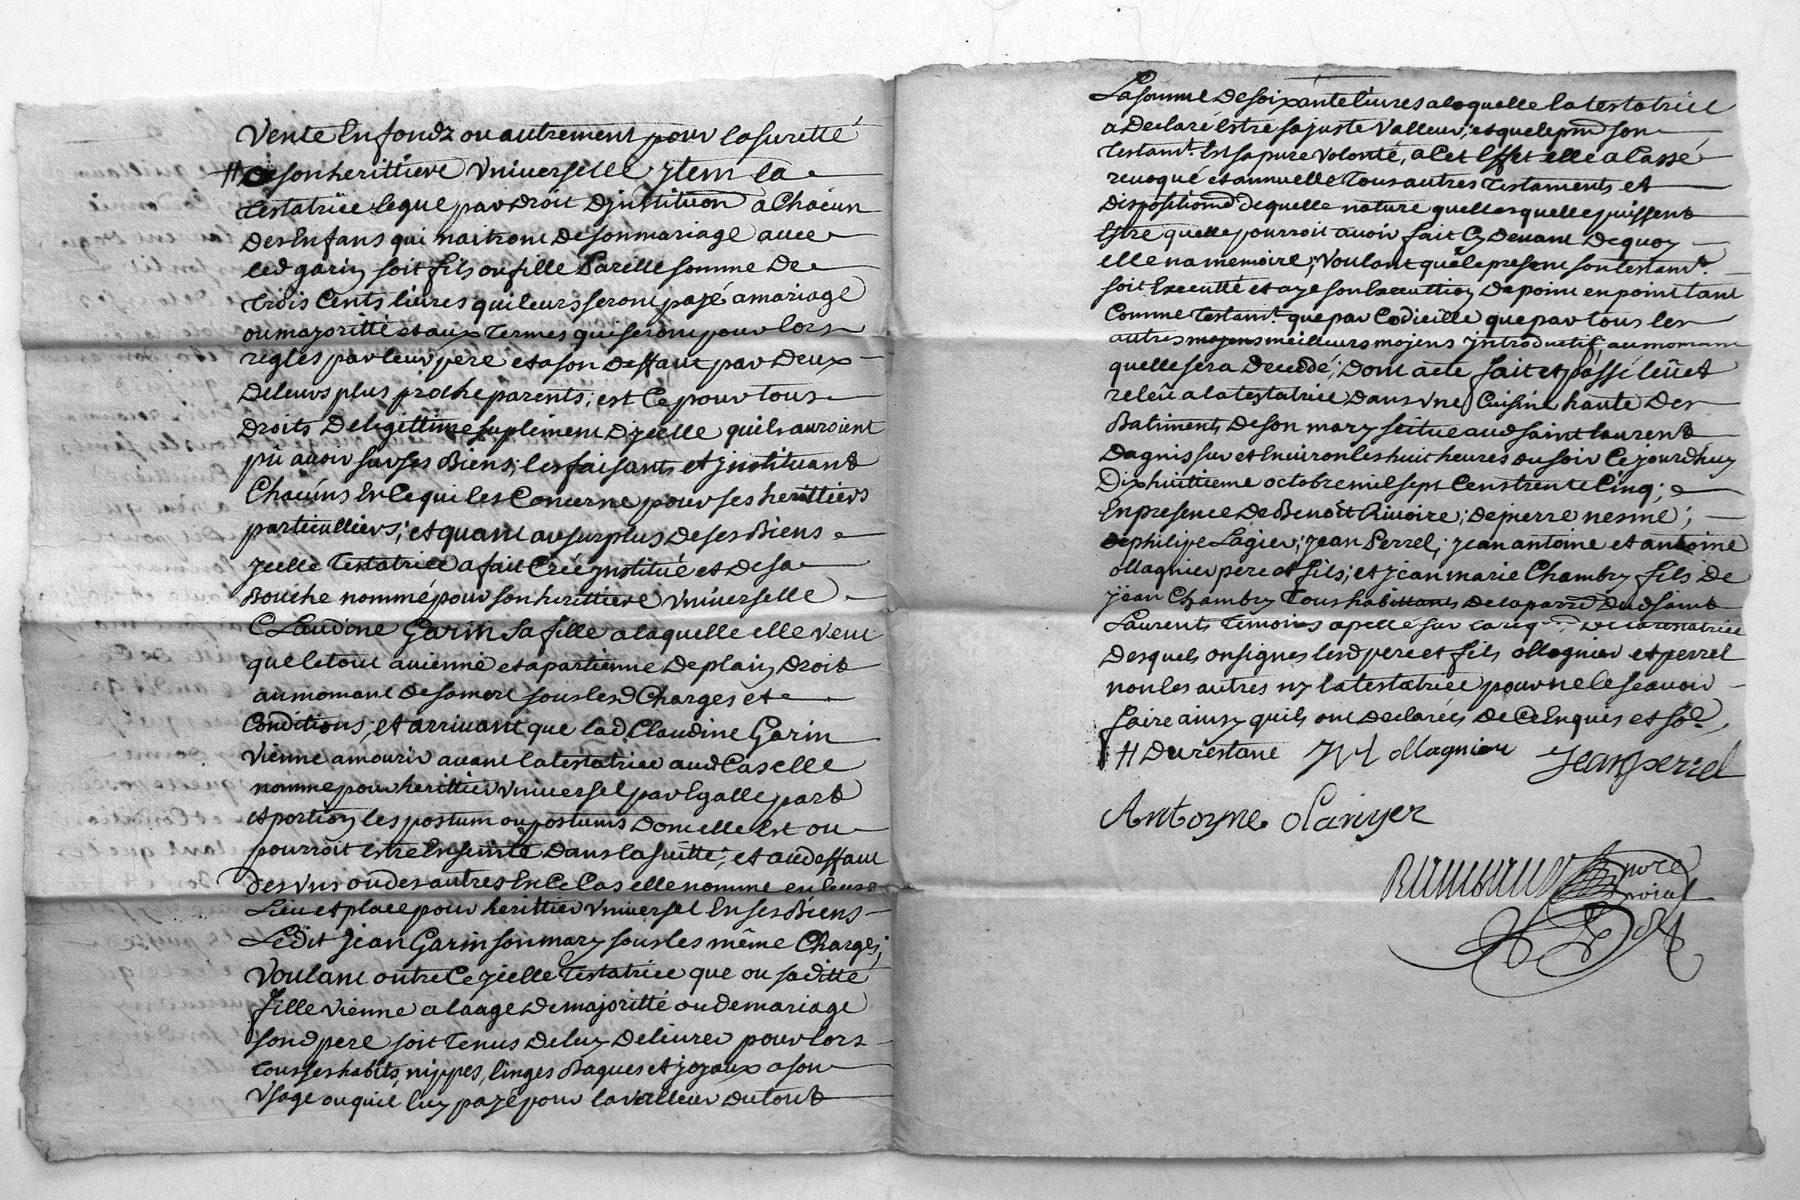 Vente En fondz ou autrement pour la suretté
# de son herittiere Universelle Jtem la
testatrice legue par droit Djnstitution a Chacun
des Enfans qui naitront de son mariage avec
led garin soit fils ou fille Pareille somme De
trois Cents livres qui leurs seront payé a mariage
ou majoritté et aux termes qui seront pour lors
regles par leur pere et a son deffaut par deux
de leurs plus proche parents; est Ce pour tous
droits De legittime suplement dycelle quils auroient
pû avoir sur ses Biens; les faisants et jnstituant
Chacuns En Ce qui les Concerne pour ses herittiers
particulliers; et quant au surplus de ses Biens
ycelle Testatrice a fait Créé ynstitué et de sa
Bouche nommé pour son herittiere Universelle
Claudine Garin sa fille a laquelle elle veut
que le tout avienne et apartienne de plain Droit
au momant de sa mort sous lesd Charges et
Conditions; et arrivant que lad Claudine Garin
vienne a mourir avant la testatrice aud Cas elle
nomme pour herittier Universel par Egalle part
et portion les postum ou postums dont elle Est ou
pourroit estre Enseinte dans la suitte; et au deffaut
des uns ou des autres En Ce Cas elle nomme en leurs
Lieu et place pour herittier Universel En ses Biens
Ledit Jean Garin son mary sous les même Charges;
Voulant outre Ce ycelle Testatrice que ou sa ditte
fille vienne a laage de majoritté ou de mariage
sond pere soit tenus de luy delivrer pour lors
tous ses habits, nippes, linges Bagues et joyaux a son
Usage ou quil luy paye pour la valleur du tout
La somme de soixante livres a laquelle la testatrice
a declaré Estre sa juste valleur; et que le pnt son
testamt. Est sa pure volonté, a Cet Effet elle a Cassé
revoqué et annuelle tous autres testaments et
dispositions de quelle nature quelles quelle puissent
Estre quelle pourroit avoir fait Cy devant de quoy
elle na memoire; voulant que le present son testamt.
soit Executté et aye son Execution de point en point tant
Comme testamt. que par Codicille que par tous les
autres moyens meilleurs moyens jntroductif, au momant
quelle sera decedé; dont acte fait et passé leû et
releû a la testatrice dans une Cuisine haute des
Batiments de son mary scitue aud saint laurent
dagnis sur et Environ les huit heures du soir Ce jourdhuy
dix huittieme octobre mil sept Cens trente Cinq;
En presence de Benoît Rivoire; de pierre nesme;
de philipe Lagier; jean Perrel; jean antoine et antoine
ollagnier pere et fils; et jean marie Chambry fils de
jean Chambry Tous habittants de la parre dud saint
Laurent Temoins apellé sur la req de la testatrice
desquels on signes lesd pere et fils ollagnier et perrel
non les autres ny la testatrice pour ne le sçavoir
faire ainsy quils ont declarées de Ce Enquis et som.
# du restant JM ollagniou Jean perrel
Antoyne olanyer
nore
royal